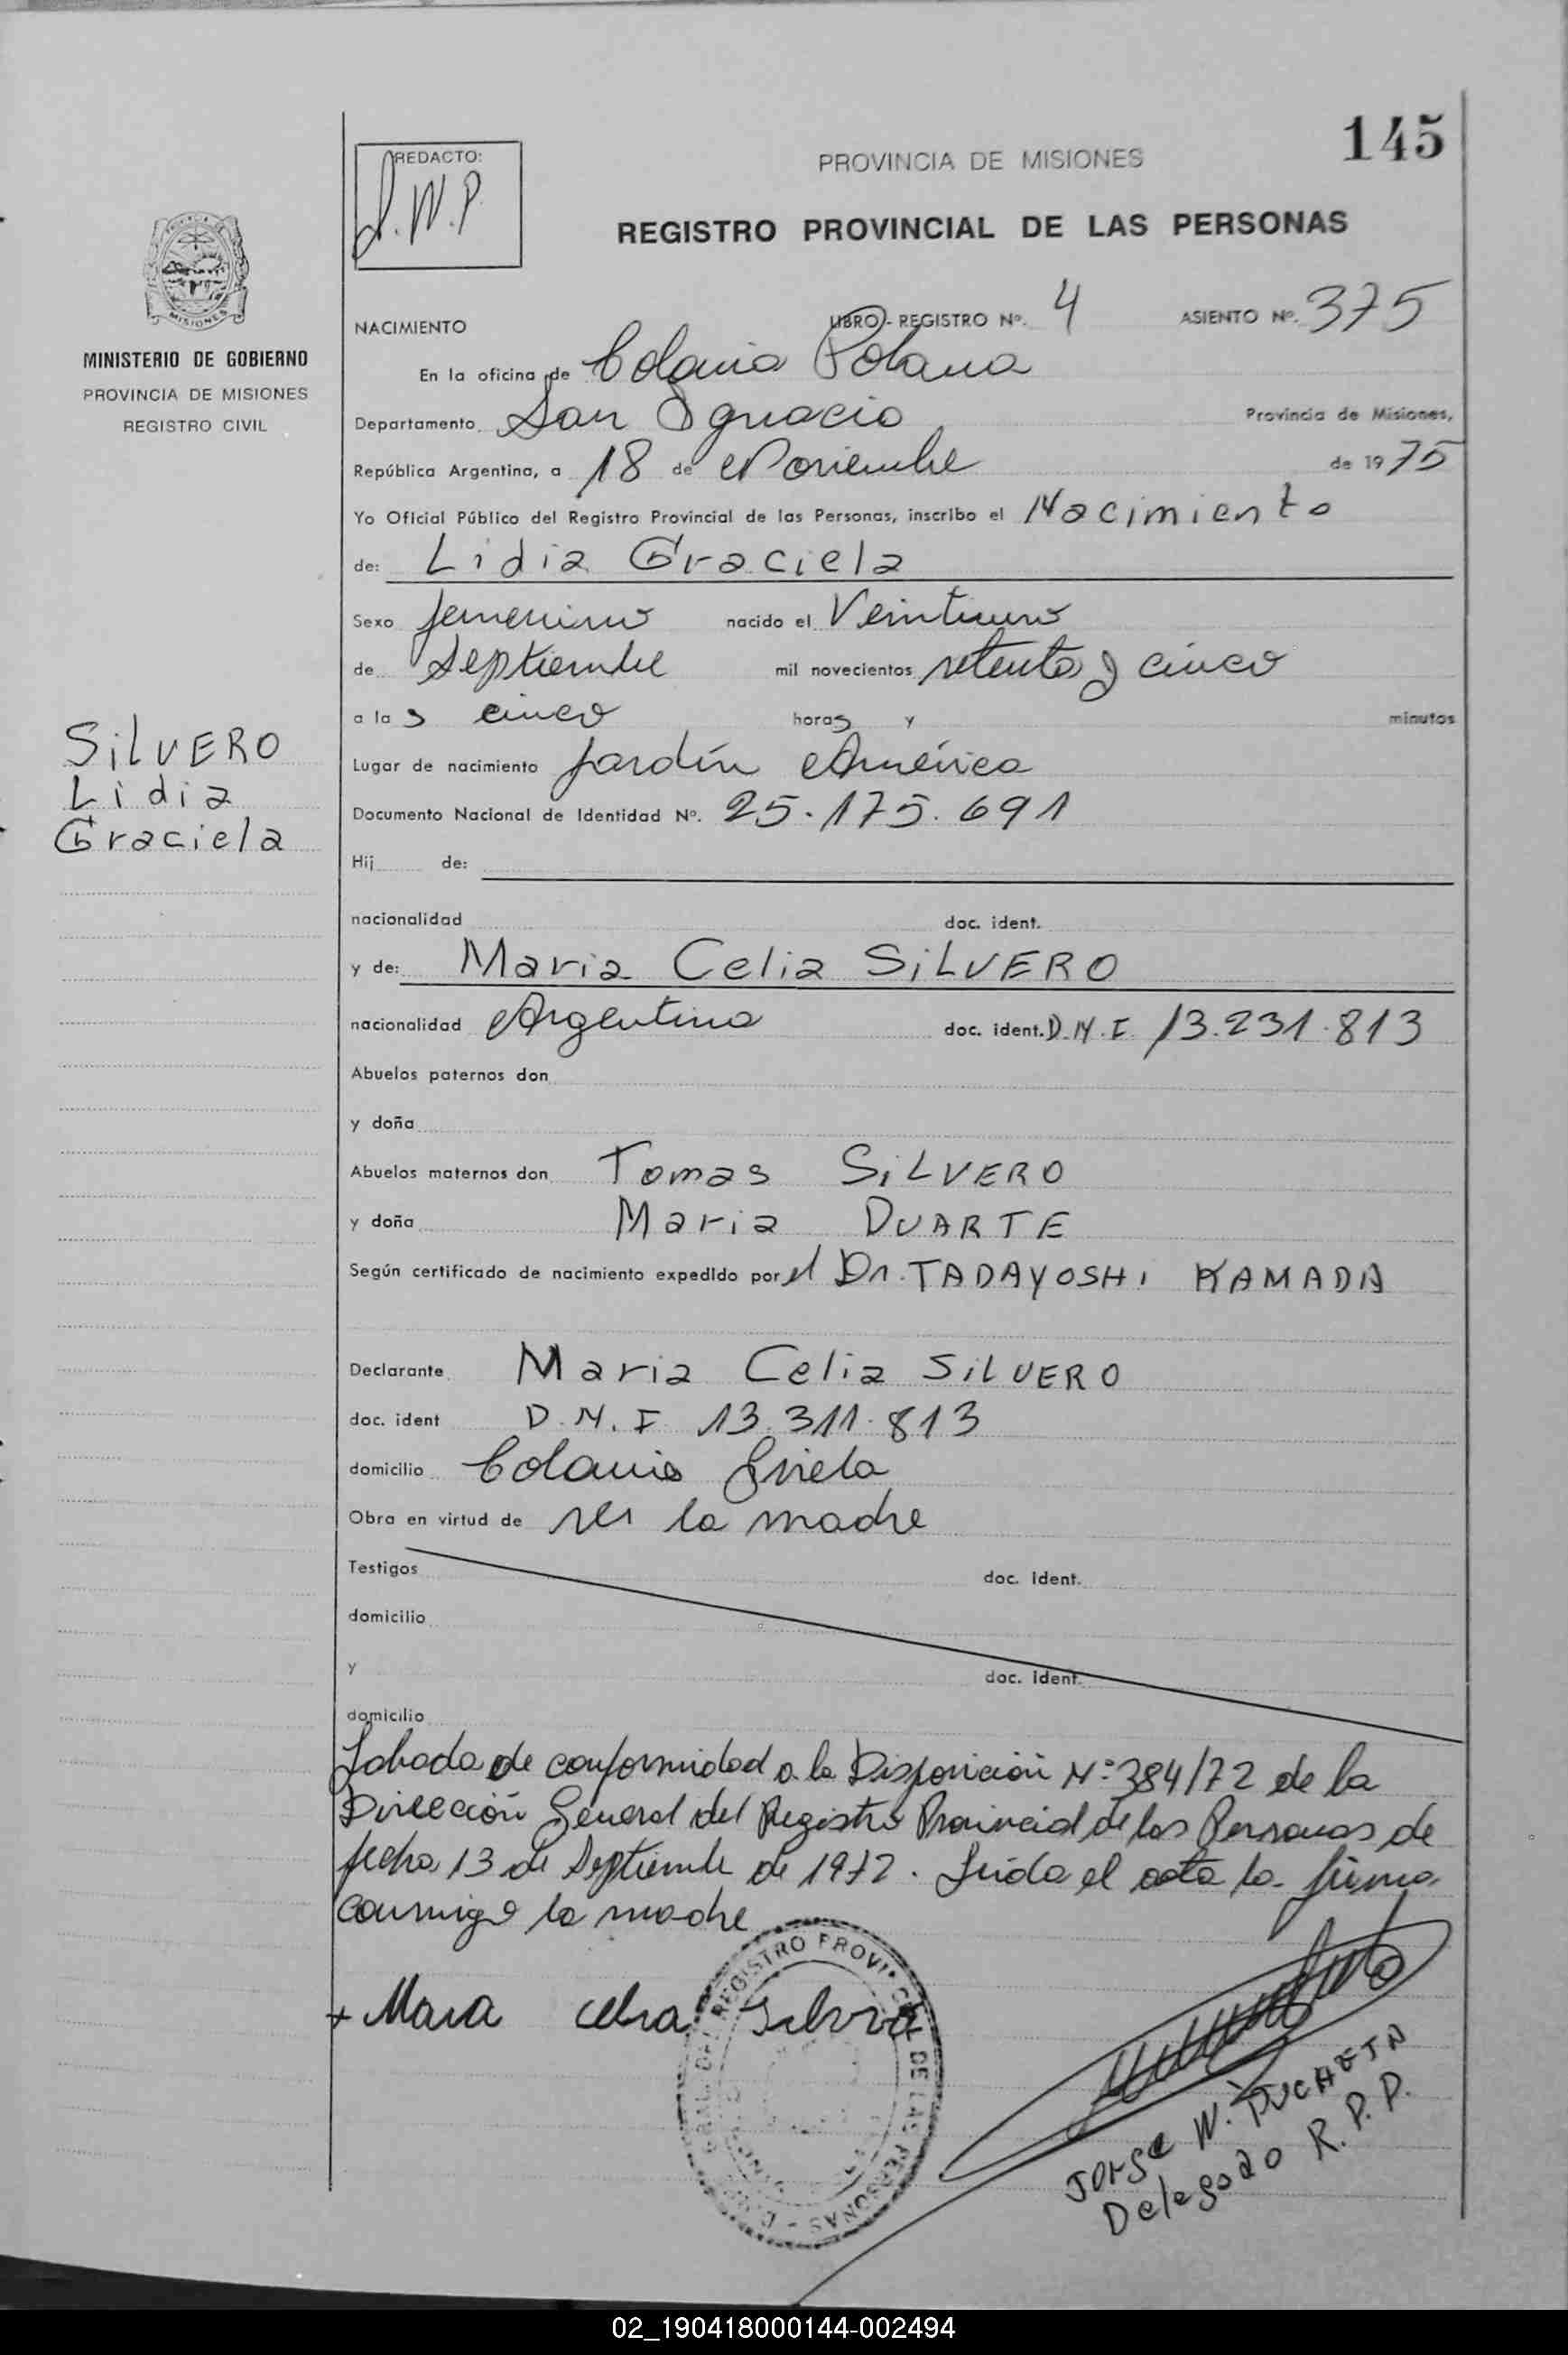 145
REDACTO:
J.W.P.
PROVINCIA DE MISIONES
REGISTRO PROVINCIAL DE LAS PERSONAS
MISIONES
MINISTERIO DE GOBIERNO
PROVINCIA DE MISIONES
REGISTRO CIVIL
NACIMIENTO LIBRO - REGISTRO Nº. 4 ASIENTO Nº. 375
En la oficina de Colonia Polana
Departamento San Ignacio Provincia de Misiones,
República Argentina, a 18 de Noviembre de 1975
Yo Oficial Público del Registro Provincial de las Personas, inscribo el Nacimiento
de: Lidia Graciela
Sexo femenino nacido el Veintiuno
de Septiembre mil novecientos setenta y cinco
a las cinco horas y minutos
Lugar de nacimiento Jardín América
Documento Nacional de Identidad Nº. 25.175.691
SilVERO
Lidia
Graciela
Hij de:
nacionalidad doc. ident.
y de: Maria Celia SiLVERO
nacionalidad Argentina doc. ident. D.N.I 13.231.813
Abuelos paternos don
y doña
Abuelos maternos don Tomas SiLVERO
y doña Maria DUARTE
Según certificado de nacimiento expedido por el Dr. TADAYOSHI KAMADA
Declarante Maria Celia SiLVERO
doc. ident D.N.I 13.311.813
domicilio Colonia
Obra en virtud de ser la madre
Testigos doc. ident.
domicilio
y doc. ident.
domicilio
Labrada de conformidad a la Disposición Nº 384/72 de la
Dirección General del Registro Provincial de las Personas de
fecha 13 de Septiembre de 1972. Leída el acta la firma
conmigo la madre
+ Maria celia Silvero
REGISTRO PROVINCIAL DE LAS PERSONAS
JORge W. PUCHETA
Delegado R.P.P.
02_190418000144-002494